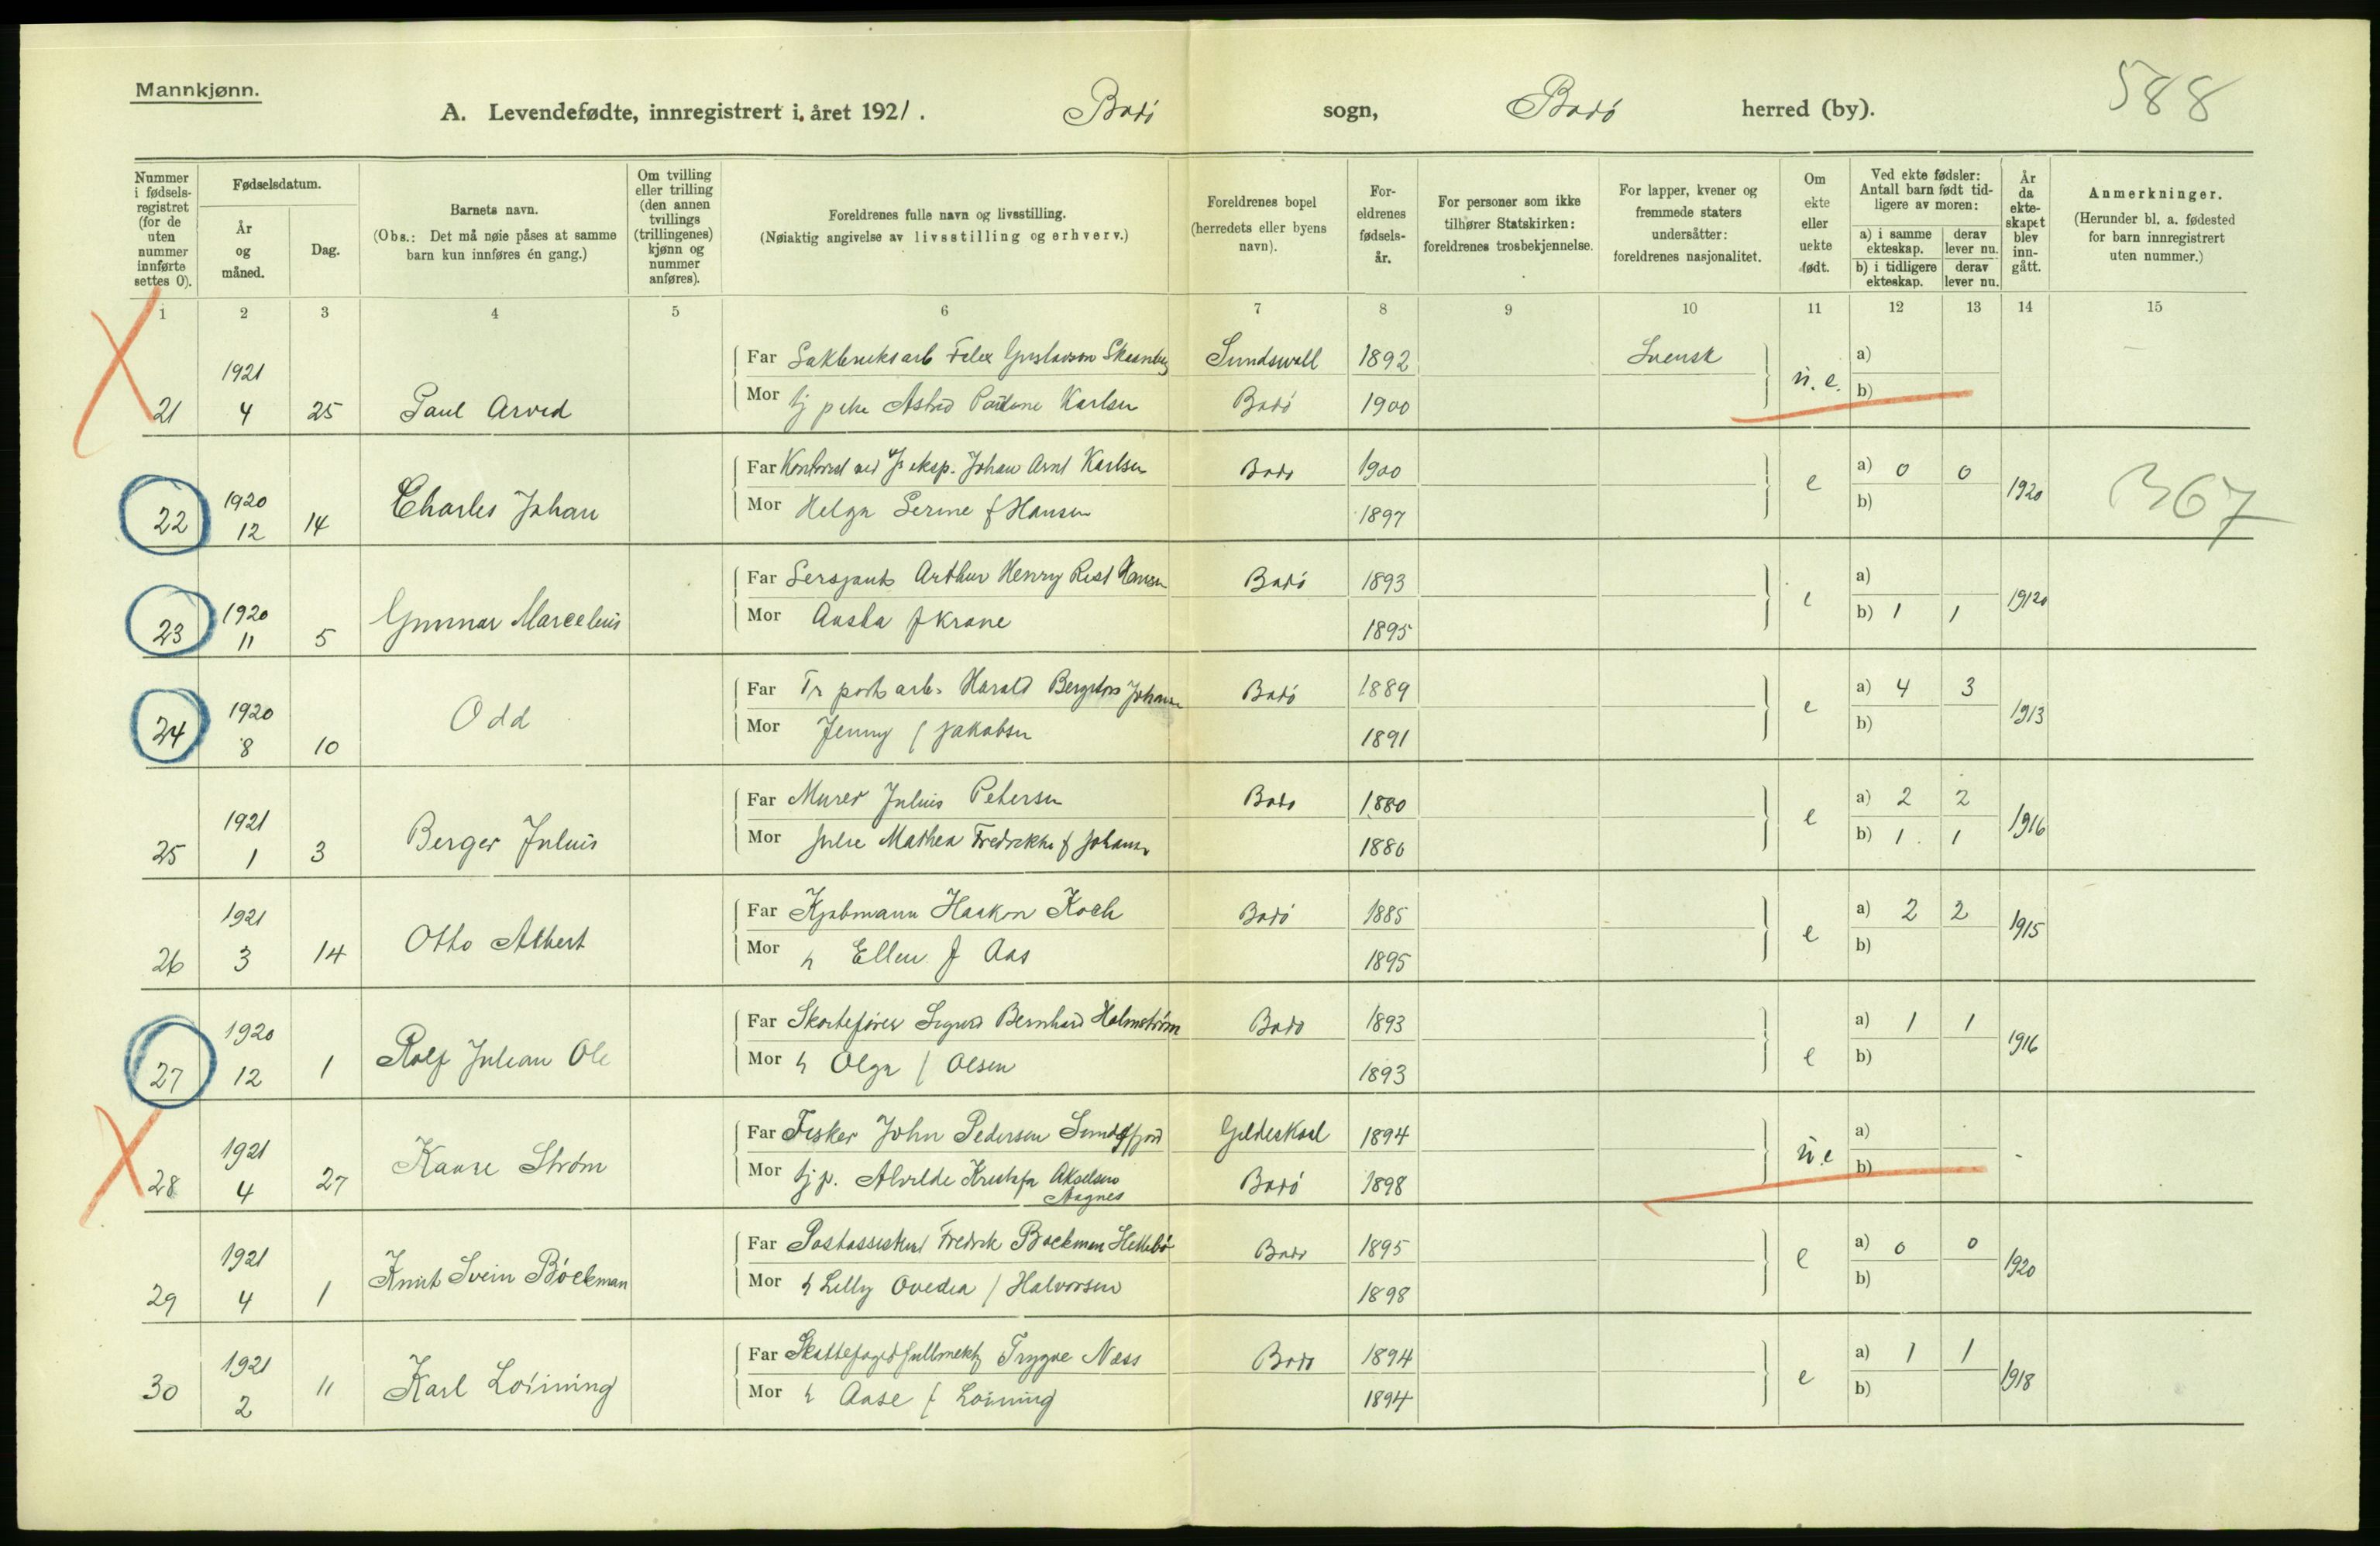 Mannkjønn.
588
A. Levendefødte, innregistrert i året 1921. Bodö sogn, Bodö herred (by).
Nummer i fødselsregistret (for de uten nummer innførte settes 0).
Fødselsdatum.
År og måned.
Dag.
Barnets navn.
(Obs.: Det må nøie påses at samme barn kun innføres én gang.)
Om tvilling eller trilling (den annen tvillings (trillingenes) kjønn og nummer anføres).
Foreldrenes fulle navn og livsstilling.
(Nøiaktig angivelse av livsstilling og erhverv.)
Foreldrenes bopel (herredets eller byens navn).
Foreldrenes fødselsår.
For personer som ikke tilhører Statskirken: foreldrenes trosbekjennelse.
For lapper, kvener og fremmede staters undersåtter: foreldrenes nasjonalitet.
Om ekte eller uekte født.
Ved ekte fødsler: Antall barn født tidligere av moren:
a) i samme ekteskap. derav lever nu.
b) i tidligere ekteskap. derav lever nu.
År da ekteskapet blev inngått.
Anmerkninger.
(Herunder bl. a. fødested for barn innregistrert uten nummer.)
1 2 3 4 5 6 7 8 9 10 11 12 13 14 15
Far Gustavson Sundswall 1892 Svensk a)
21 1921 4 25 Paul Arved u.e.
Mor Astrid Karlsen Bodö 1900 b)
Far Kontorist ved eksp. Johan Arnt Karlsen Bodö 1900 a) 0 0
22 1920 12 14 Charles Johan e 1920 367
Mor Helga Serine f Hansen 1897 b)
Far Sersjant Arthur Henry Rist Hansen Bodö 1893 a)
23 1920 11 5 Gunnar Marcelius e 1920
Mor Aasta f Krane 1895 b) 1 1
Far Tr port arb. Harald Johansen Bodö 1889 a) 4 3
24 1920 8 10 Odd e 1913
Mor Jenny f Jakobsen 1891 b)
Far Murer Julius Petersen Bodö 1880 a) 2 2
25 1921 1 3 Berger Julius e 1916
Mor Julie Mathea Fredrikke f Johansen 1880 b) 1 1
Far Kjøbmann Haakon Koch Bodö 1885 a) 2 2
26 1921 3 14 Otto Albert e 1915
Mor h Ellen f Aas 1895 b)
Far Sigurd Bernhard Holmstrøm Bodö 1893 a) 1 1
27 1920 12 1 Rolf Julian Ole e 1916
Mor h Olga f Olsen 1893 b)
Far Fisker John Pedersen Sundsfjord Gildeskaal 1894 a)
28 1921 4 27 Kaare Strøm u.e -
Mor tj p. Alvilde Akselsen Bodö 1898 b)
Aagnes
Far Postassistent Fredrik Bockman Bodö 1895 a) 0 0
29 1921 4 1 Knut Svein Böckman e 1920
Mor h Lilly Ovedia f Halvorsen 1898 b)
Far Skattefogedfullmektig Trygve Næss Bodö 1894 a) 1 1
30 1921 2 11 Karl Loining e 1918
Mor h Aase f Loining 1894 b)